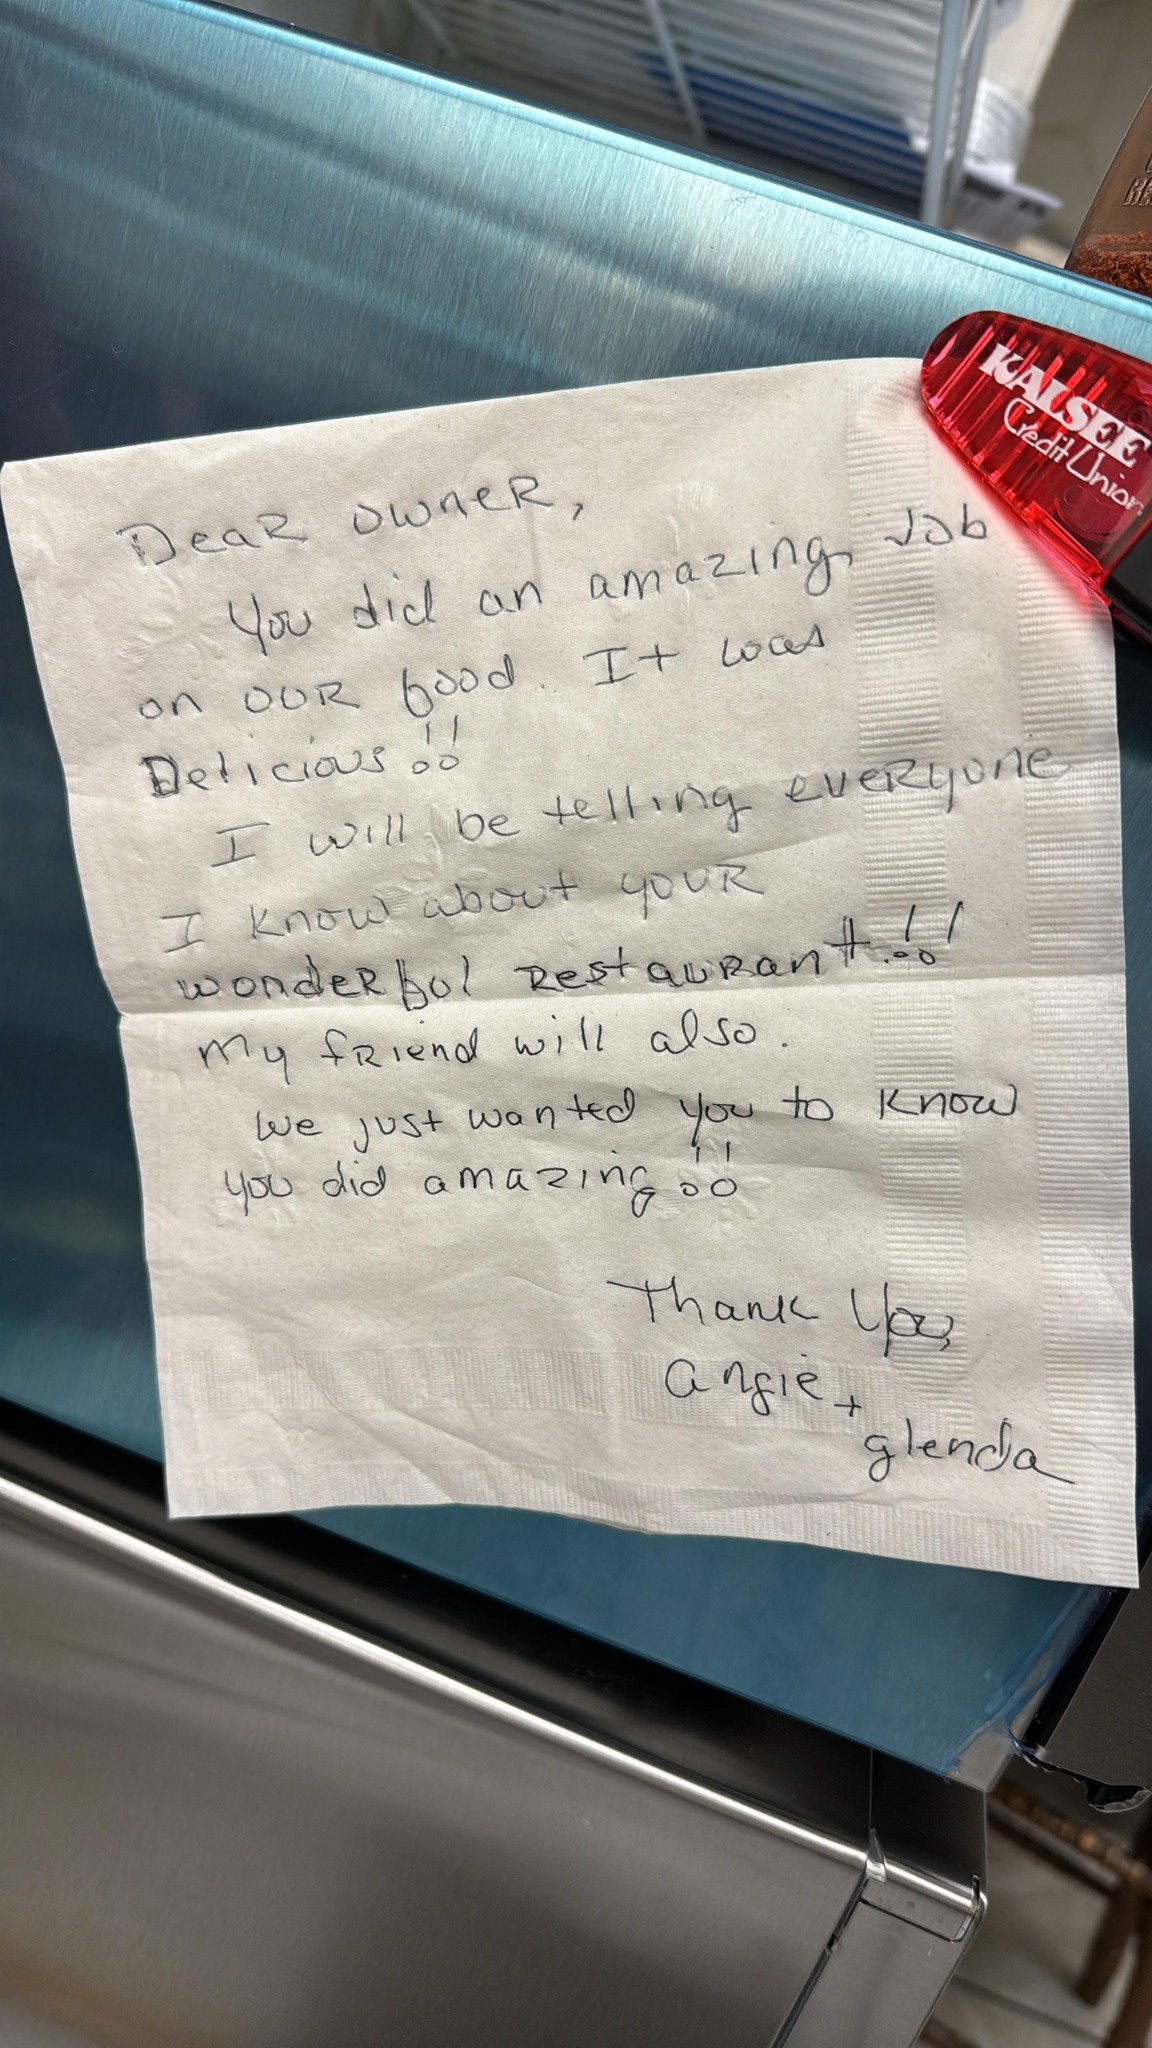 KALSEE
Credit Union
Dear owner,
You did an amazing Job
on our food. It was
Delicious!!
I will be telling everyone
I know about your
wonderful Restaurant!!
My friend will also.
We just wanted you to know
you did amazing!!
Thank You,
Angie +
glenda